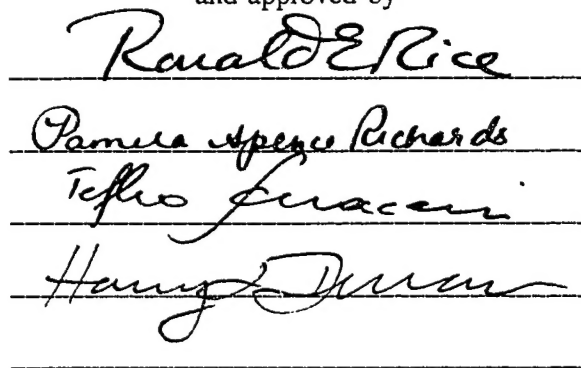 and approved by
Ronald E Rice
Pamela Spence Richards
Tefko Saracevic
Harry